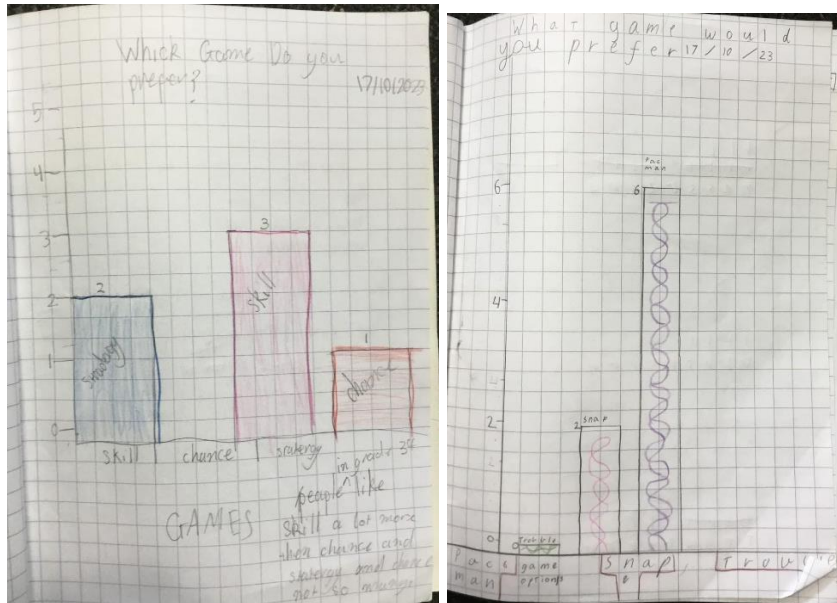 Which Game Do you
preper?
17/10/2023
5
4
3
2
1
0
2
3
1
stratergy
skill
chance
skill
chance
stratergy
GAMES
in grade 34
people ^ like
skill a lot more
then chance and
stratergy and chance
not so
What game would
you prefer 17/10/23
6
4
2
0
pac
man
6
snap
2
Trouble
0
Pacs
man
game
options
Snap,
Trouble